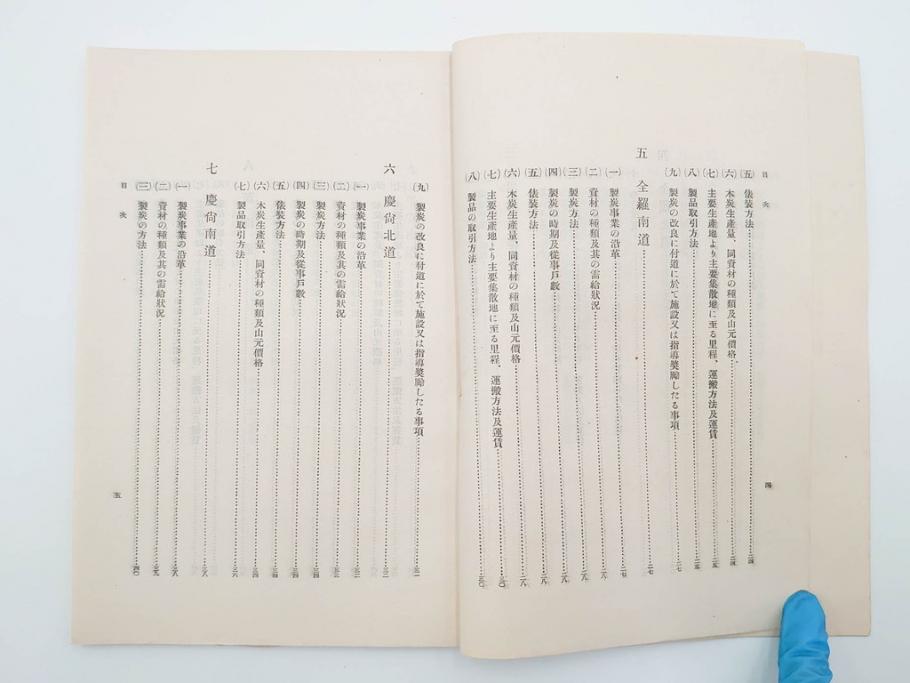 目次
四
(五) 俵装方法……二四
(六) 木炭生產量、同資材の種類及山元價格……二四
(七) 主要生產地より主要集散地に至る里程、運搬方法及運賃……二五
(八) 製品取引方法……二五
(九) 製炭の改良に付道に於て施設又は指導奬勵したる事項……二七
五 全羅南道……二七
(一) 製炭事業の沿革……二七
(二) 資材の種類及其の需給狀況……二八
(三) 製炭方法……二八
(四) 製炭の時期及從事戶數……二八
(五) 俵装方法……二八
(六) 木炭生產量、同資材の種類及山元價格……二八
(七) 主要生產地より主要集散地に至る里程、運搬方法及運賃……三〇
(八) 製品の取引方法……三〇
(九) 製炭の改良に付道に於て施設又は指導奬勵したる事項……三一
六 慶尙北道……三二
(一) 製炭事業の沿革……三二
(二) 資材の種類及其の需給狀況……三三
(三) 製炭方法……三四
(四) 製炭の時期及從事戶數……三四
(五) 俵装方法……三四
(六) 木炭生產量、同資材の種類及山元價格……三四
(七) 製品取引方法……三六
七 慶尙南道……三八
(一) 製炭事業の沿革……三八
(二) 資材の種類及其の需給狀況……三九
(三) 製炭の方法……四〇
目次
五